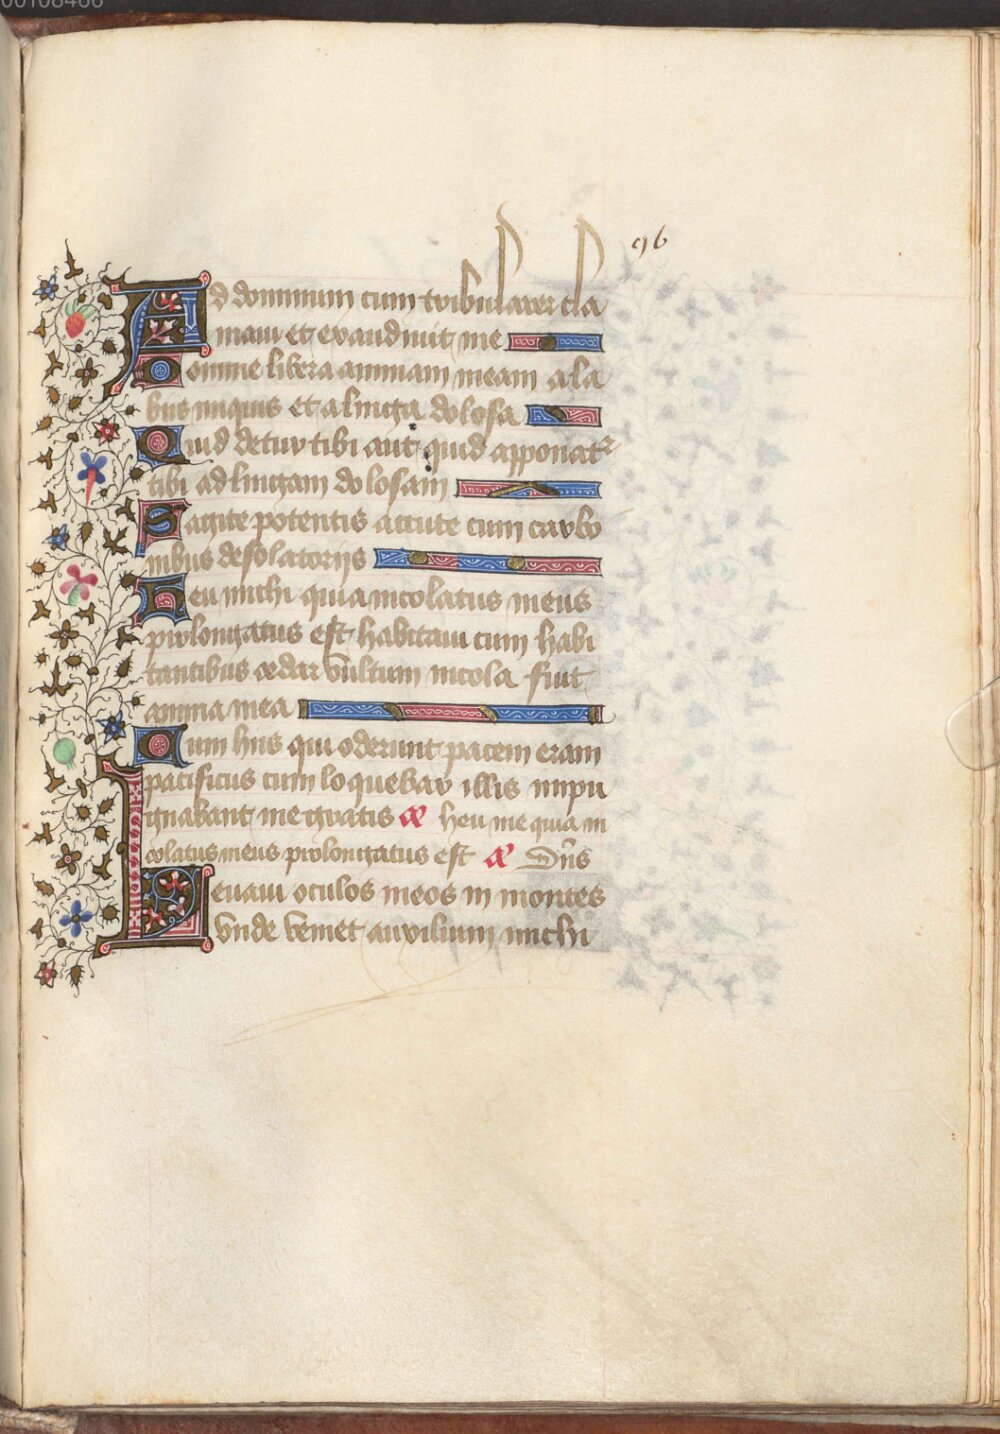 00108466
96
Ad dominum cum tribularer cla
maui et exaudiuit me
Domine libera animam meam a la
biis iniquis et a lingua dolosa
Quid detur tibi aut quid apponatr
tibi ad linguam dolosam
Sagite potentis accute cum carbo
nibus desolatoriis
Heu michi quia incolatus meus
prolongatus est habitaui cum habi
tantibus cedar multum incola fiut
anima mea
Cum hiis qui oderunt pacem eram
pacificus cum loquebar illis inpu
gnabant me gratis a heu me quia in
colatus meus prolongatus est a Dns
Leuaui oculos meos in montes
vnde veniet auxilium michi